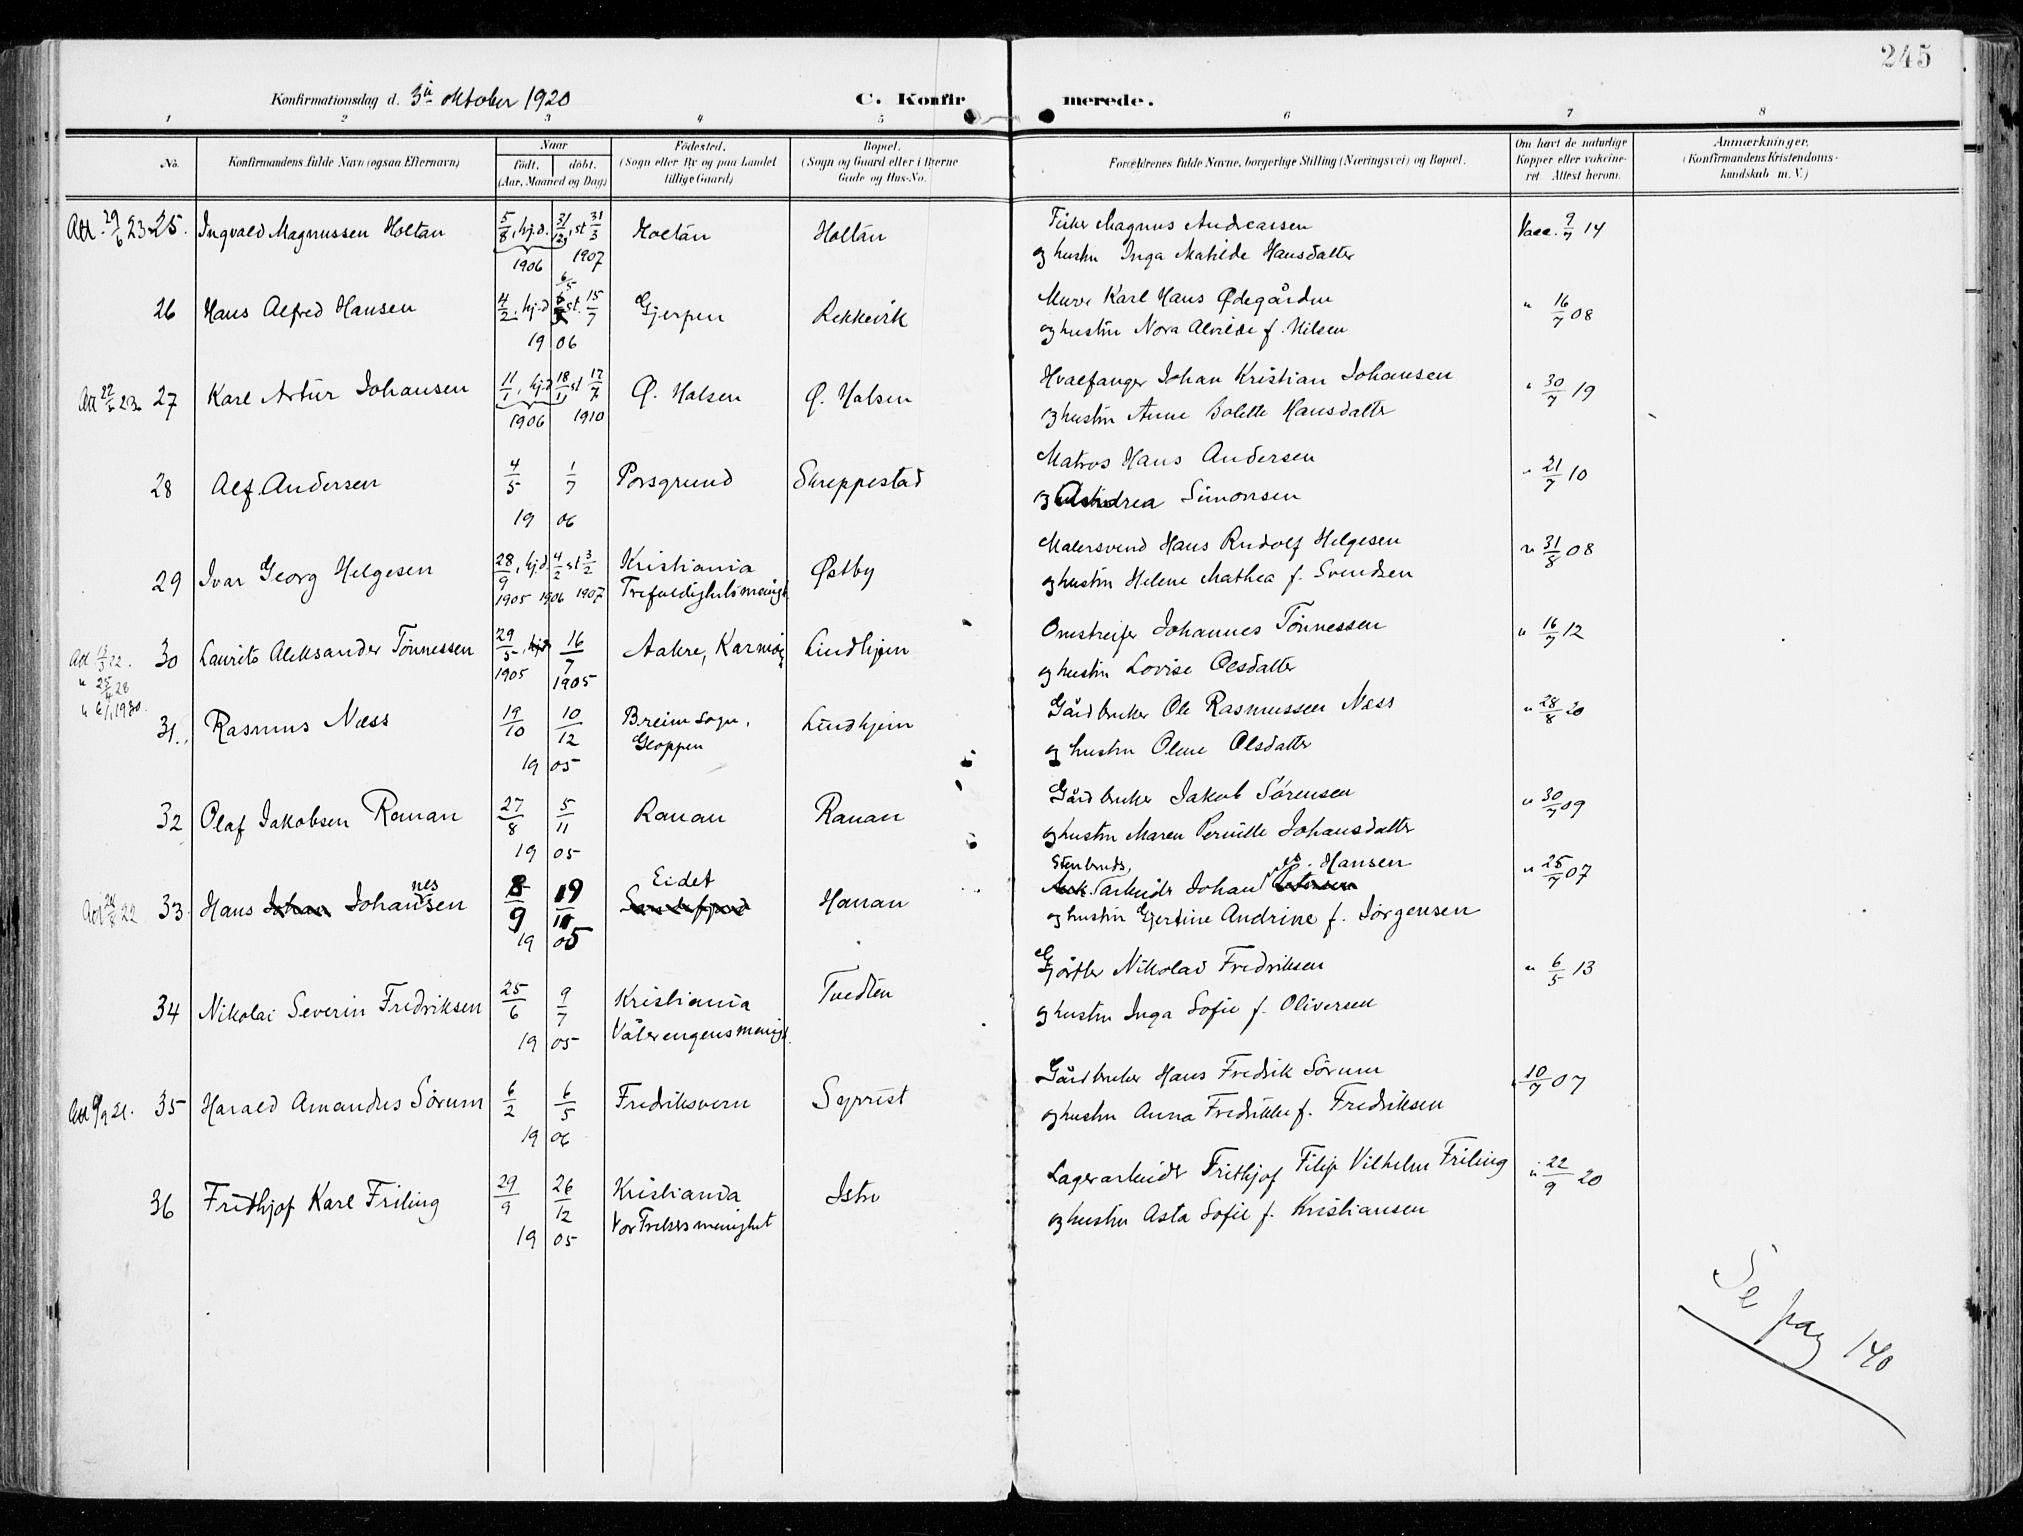 245
Konfirmationsdag d. 3die oktober 1920 C. Konfirmerede.
1 2 3 4 5 6 7 8
No. Konfirmandens fulde Navn (ogsaa Efternavn) Naar født. døbt. (Aar, Maaned og Dag) Födested. (Sogn eller By og paa Landet tillige Gaard) Bopæl. (Sogn og Gaard eller i Byerne Gade og Hus-No. Forældrenes fulde Navne, borgerlige Stilling (Næringsvei) og Bopæl. Om havt de naturlige Kopper eller vakcineret Attest herom. Anmærkninger. (Konfirmandens Kristendomskundskab m. V.)
Att. 29/6 23 25. Ingvald Magnussen Holtan 5/8, hj.d. 31/12, st 31/3 Holtan Holtan Fisker Magnus Andreassen Vacc. 9/7 14
1906 1907 og hustru Inga Matilde Hansdatter
26 Hans Alfred Hansen 4/2, hj.d. 6/5 st. 15/7 Gjerpen Rekkevik Murer Karl Hans Ødegården " 16/7 08
19 06 og hustru Nora Alvilde f. Nilsen
Att 22/5 23 27 Karl Artur Johansen 11/1, hj.d 18/11 st 17/7 Ø. Halsen Ø. Halsen Hvalfanger Johan Kristian Johansen " 30/7 19
1906 1910 og hustru Anne Bolette Hansdatter
28 Alf Andersen 4/5 1/7 Porsgrund Skreppestad Matros Hans Andersen " 21/7 10
19 06 og Andrea Simonsen
29 Ivar Georg Helgesen 28/9, hj.d 4/2 st 3/2 Kristiania Østby Malersvend Hans Rudolf Helgesen " 31/8 08
1905 1906 1907 Trefoldighetsmenigh og hustru Helene Mathea f. Svendsen
Att 13/3 22. 30 Laurits Aleksander Tönnessen 29/5, hjd 16/7 Aakre, Karmöy Lindhjem Omstreifer Johannes Tönnessen " 16/7 12
" 25/4 28 1905 1905 og hustru Lovise Olsdatter
" 6/1 1930.
31. Rasmus Næss 19/10 10/12 Breim sogn, Gloppen Lindhjem Gårdbruker Ole Rasmussen Næss " 28/8 20
19 05 og hustru Oline Olsdatter
32 Olaf Jakobsen Rauan 27/8 5/11 Rauan Rauan Gårdbruker Jakob Sörensen " 30/7 09
19 05 og hustru Maren Pernille Johansdatter
Att 24/8 22 33. Hans Johan Johannessen 8/9 19/10 Eidet Sandefjord Hauan Stenbruds arbeider Johannes Hansen " 25/7 07
19 05 og hustru Gjertine Andrine f. Jørgensen
34 Nikolai Severin Fredriksen 25/6 9/7 Kristiania Tvedten Gjörtler Nikolai Fredriksen " 6/5 13
19 05 Vålerengens menigh. og hustru Inga Sofie f. Oliversen
Att 9/9 21. 35 Harald Amandus Sörum 6/2 6/5 Fredriksvern Syrrist Gårdbruker Hans Fredrik Sörum " 10/7 07
19 06 og hustru Anna Fredrikke f. Fredriksen
36 Fridthjof Karl Friling 29/9 26/12 Kristiania Istre Lagerarbeider Frithjof Filip Vilhelm Friling " 22/9 20
19 05 Vor Frelsers menighet og hustru Asta Sofie f. Kristiansen
Se pag 140